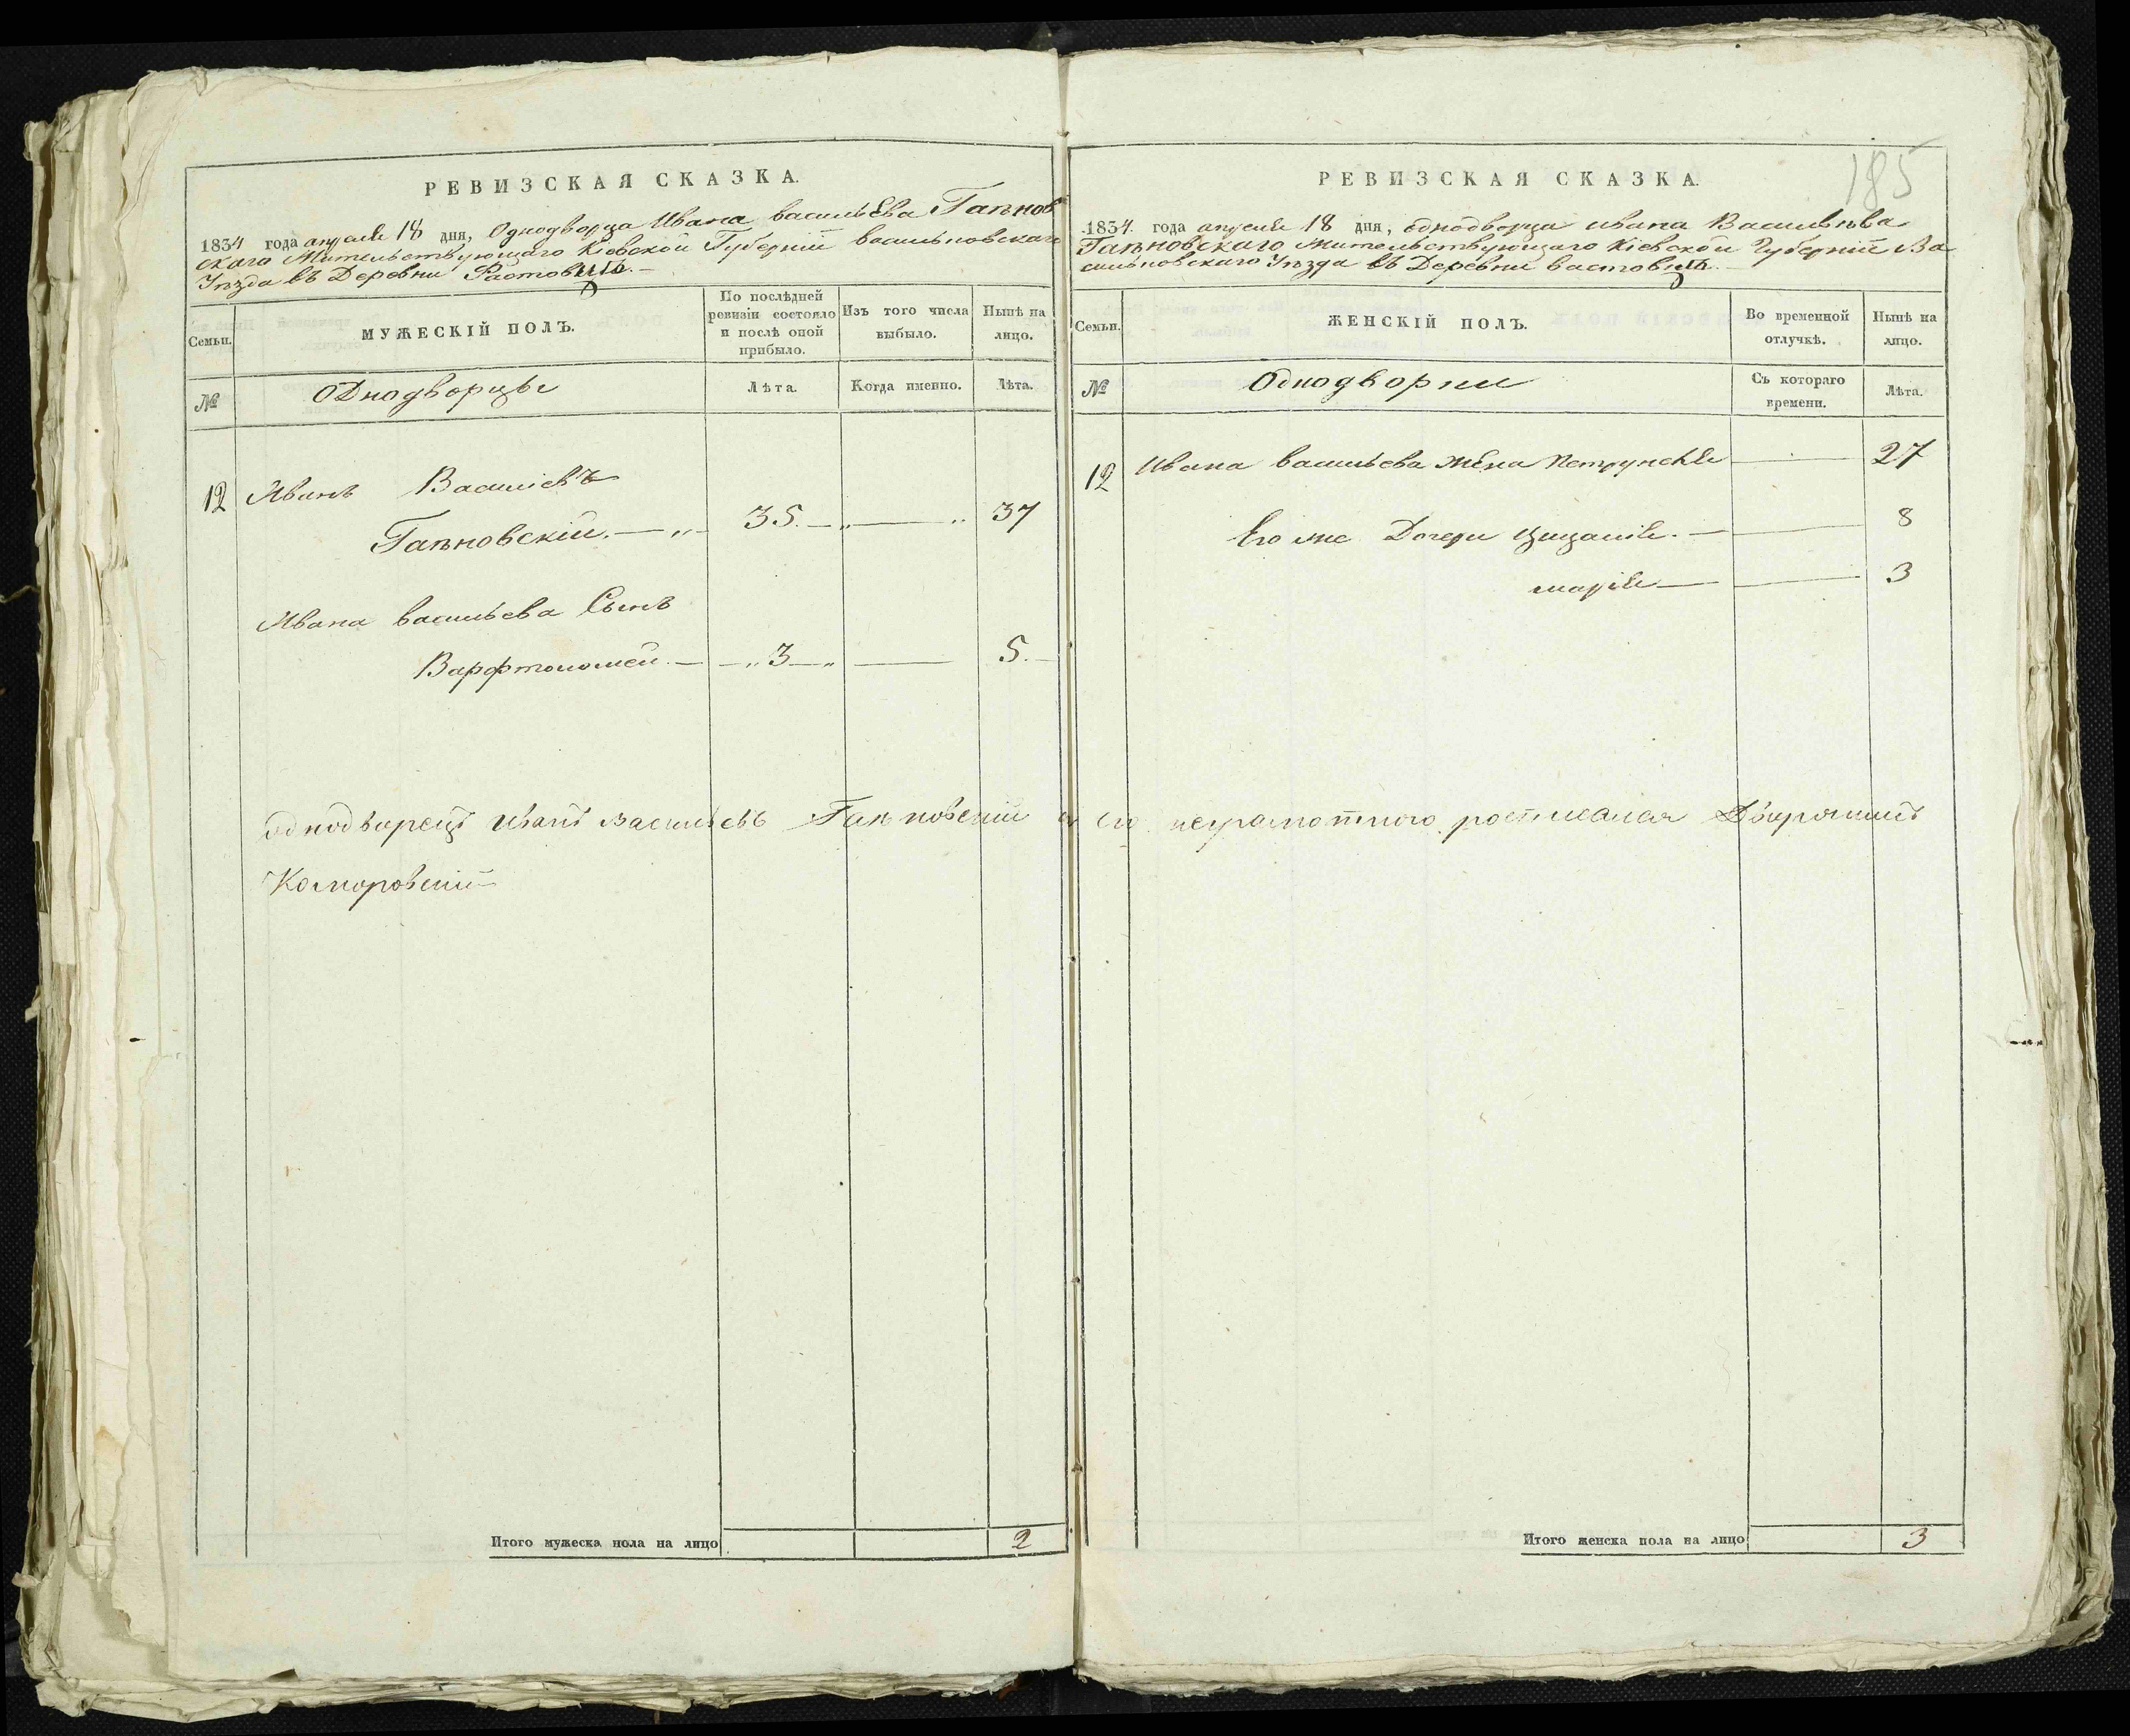 РЕВИЗСКАЯ СКАЗКА.
1834 года апреля 18 дня, Однодворца Ивана васильева Гапѣнов
скаго Жительствующаго Кіевской Губерніи васильковскаго
Уѣзда въ Деревни
Семьи.
МУЖЕСКІЙ ПОЛЪ.
По послѣдней ревизіи состояло и послѣ оной прибыло.
Изъ того числа выбыло.
Нынѣ на лицо.
№
Однодворцы
Лѣта.
Когда именно.
Лѣта.
12 Иванъ Василіевъ
Гапѣновскій. 35. 37
Ивана васильева Сынъ
Варфтоломей. 3 5.
однодворецъ Иванъ Васильевъ
Коморовскій
Итого мужеска пола на лицо 2
185
РЕВИЗСКАЯ СКАЗКА.
1834. года апреля 18 дня, однодворца ивана
скаго Жительствующаго Кіевской Губерніи Ва
сильковскаго Уѣзда въ Деревни
Семьи.
ЖЕНСКІЙ ПОЛЪ.
Во временной отлучкѣ.
Нынѣ на лицо.
№
Однодворки
Съ котораго времени.
Лѣта.
12 Ивана васильева жена 27
Его же Дочери 8
марія 3
его неграмотного росписался
Итого женска пола на лицо 3